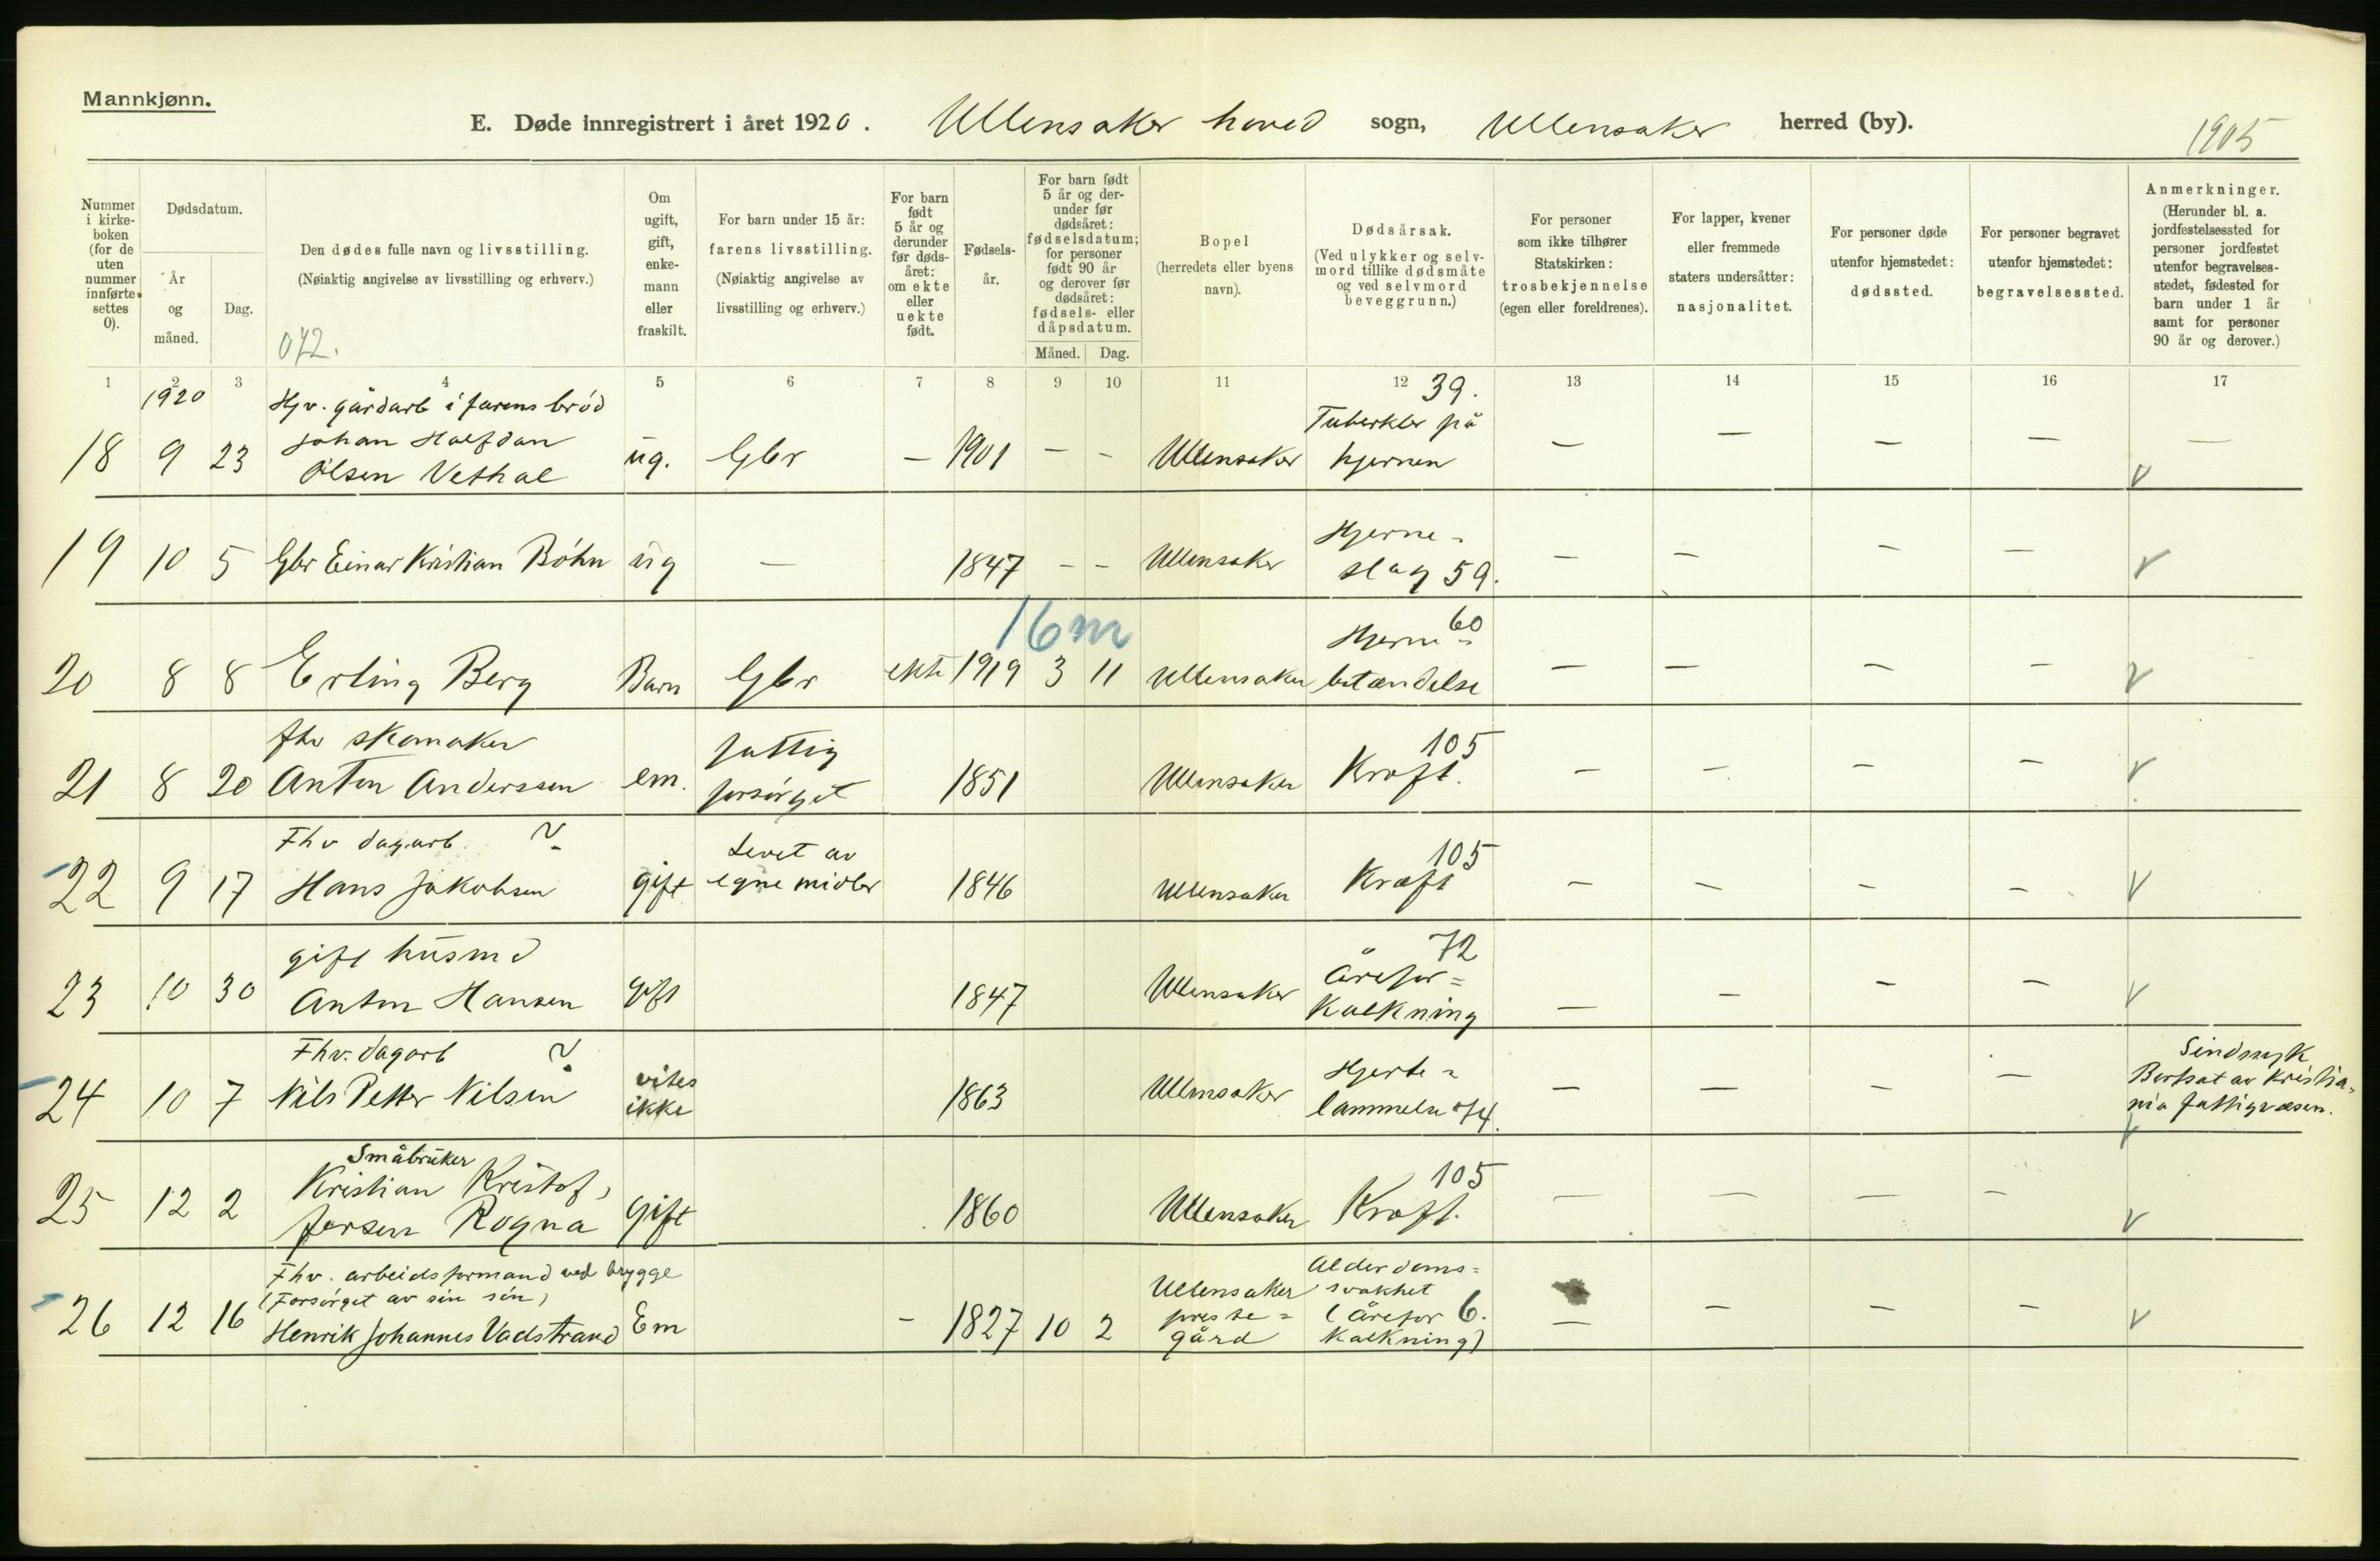 Mannkjønn.
E. Døde innregistrert i året 1920. Ullensaker hoved sogn, Ullensaker herred (by).
1905
Nummer i kirkeboken (for de uten nummer innførte settes 0).
Dødsdatum.
År og måned.
Dag.
Den dødes fulle navn og livsstilling.
(Nøiaktig angivelse av livsstilling og erhverv.)
072.
Om ugift, gift, enkemann eller fraskilt.
For barn under 15 år: farens livsstilling.
(Nøiaktig angivelse av livsstilling og erhverv.)
For barn født 5 år og derunder før dødsåret: om ekte eller uekte født.
Fødselsår.
For barn født 5 år og derunder før dødsåret: fødselsdatum; for personer født 90 år og derover før dødsåret: fødsels- eller dåpsdatum.
Måned. Dag.
Bopel
(herredets eller byens navn).
Dødsårsak.
(Ved ulykker og selvmord tillike dødsmåte og ved selvmord beveggrunn.)
For personer som ikke tilhører Statskirken: trosbekjennelse (egen eller foreldrenes).
For lapper, kvener eller fremmede staters undersåtter: nasjonalitet.
For personer døde utenfor hjemstedet: dødssted.
For personer begravet utenfor hjemstedet: begravelsessted.
Anmerkninger.
(Herunder bl. a. jordfestelsessted for personer jordfestet utenfor begravelsesstedet, fødested for barn under 1 år samt for personer 90 år og derover.)
1 2 3 4 5 6 7 8 9 10 11 12 13 14 15 16 17
1920 Hjv. gårdarb i farens brød 39.
Johan Halfdan Tuberkler på
18 9 23 Olsen Vethal ug. Gbr — 1901 - - Ullensaker hjernen — — — — — v
Hjerne-
19 10 5 Gbr Einar Kristian Böhn ug — 1847 - - Ullensaker slag 59. — — — — v
16 m Hjerne= 60
20 8 8 Erling Berg Barn Gbr ekte 1919 3 11 Ullensaker betændelse — — — — v
fhv skomaker fattig 105
21 8 20 Anton Anderssen em. forsørget 1851 Ullensaker Kræft. — — — — v
Fhv dagarb. Levet av 105
22 9 17 Hans Jakobsen gift egne midler 1846 Ullensaker Kræft — — — — v
gift husmd 72
Årefor=
23 10 30 Anton Hansen gift 1847 Ullensaker kalkning — — — — v
Fhv. dagarb vites Hjerte= Sindssyk
24 10 7 Nils Petter Nilsen ikke 1863 Ullensaker lammelse 74. — — — — Bortsat av Kristia-
nia fattigvæsen. v
Småbruker 105
Kristian Kristof-
25 12 2 fersen Rogna Gift 1860 Ullensaker Kræft. — — — — v
Fhv. arbeidsformand ved brygge Alderdoms=
(Forsørget av sin søn) Ullensaker svakhet
preste= (Årefor 6.
26 12 16 Henrik Johannes Vadstrand Em - 1827 10 2 gård kalkning) — — — — v